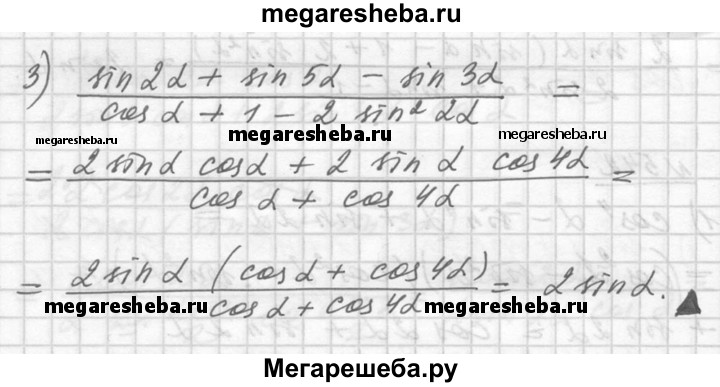 megaresheba.ru
3) (sin 2α + sin 5α − sin 3α) / (cos α + 1 − 2 sin² 2α) =
megaresheba.ru megaresheba.ru megaresheba.ru
= (2 sin α cos α + 2 sin α cos 4α) / (cos α + cos 4α) =
= (2 sin α (cos α + cos 4α)) / (cos α + cos 4α) = 2 sin α. ▲
megaresheba.ru megaresheba.ru
Мегарешеба.ру